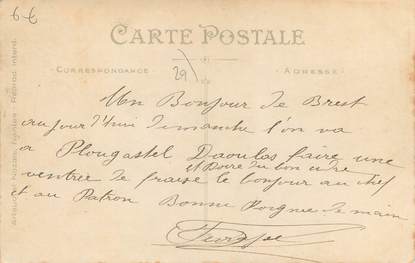 6 €
CARTE POSTALE
CORRESPONDANCE
29
ADRESSE
Un Bonjour de Brest
aujourd'hui dimanche l'on va
a Plougastel Daoulas faire une
et Boire du bon cidre
ventrée de fraise le bonjour au chef
et au Patron Bonne Poignée de main